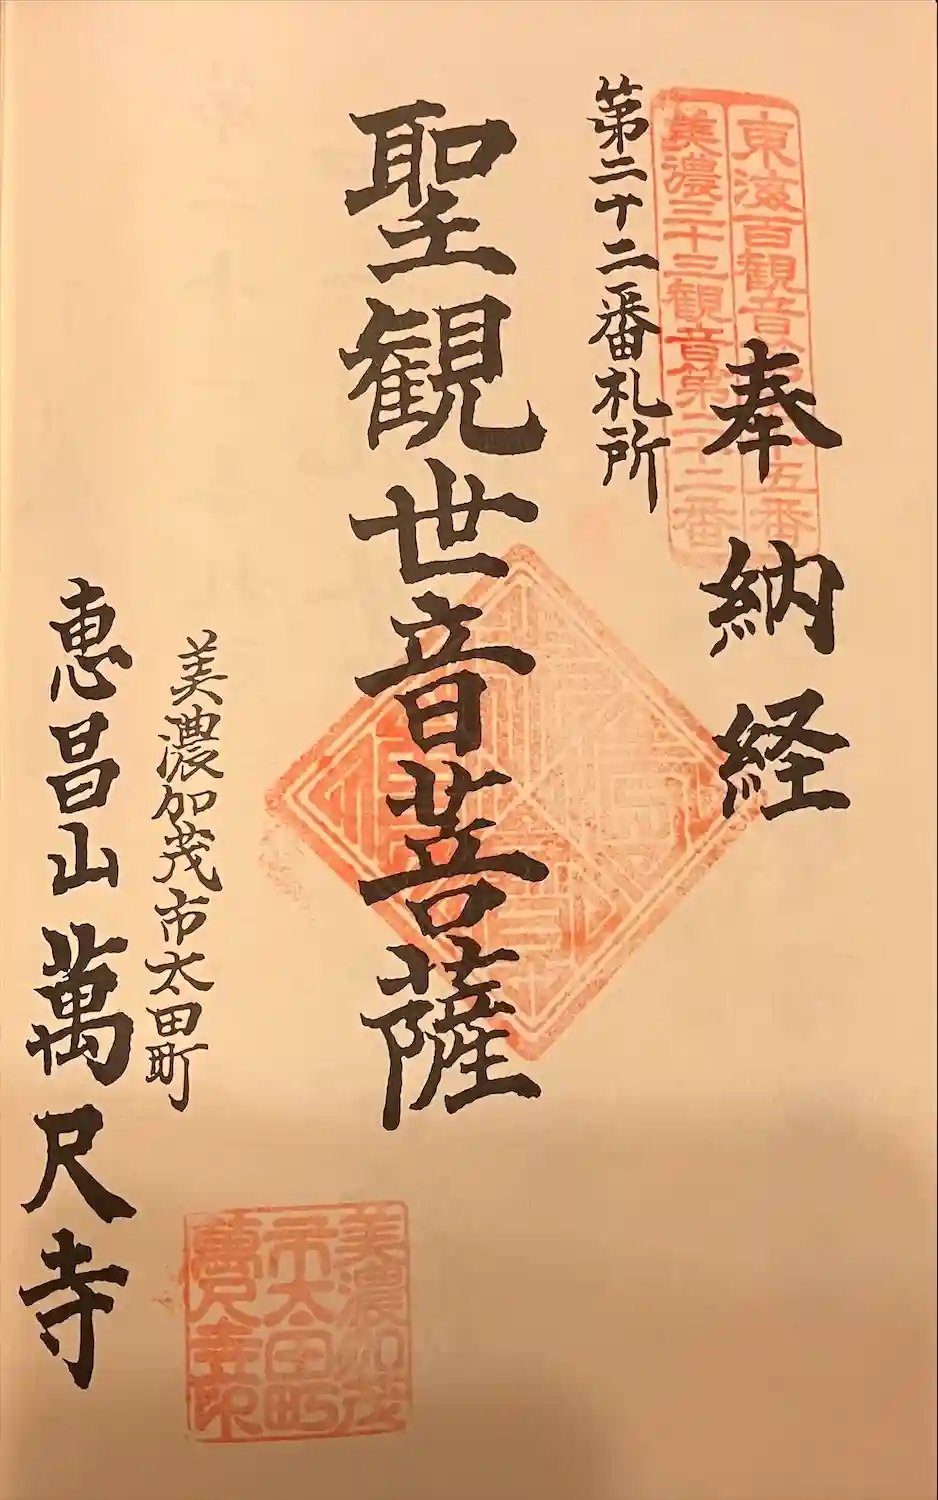 奉納経
東海百観音第
十五番
美濃三十三観音第二十二番
第二十二番札所
聖観世音菩薩
美濃加茂市太田町
恵昌山萬尺寺
美濃加茂
市太田町
萬尺寺印